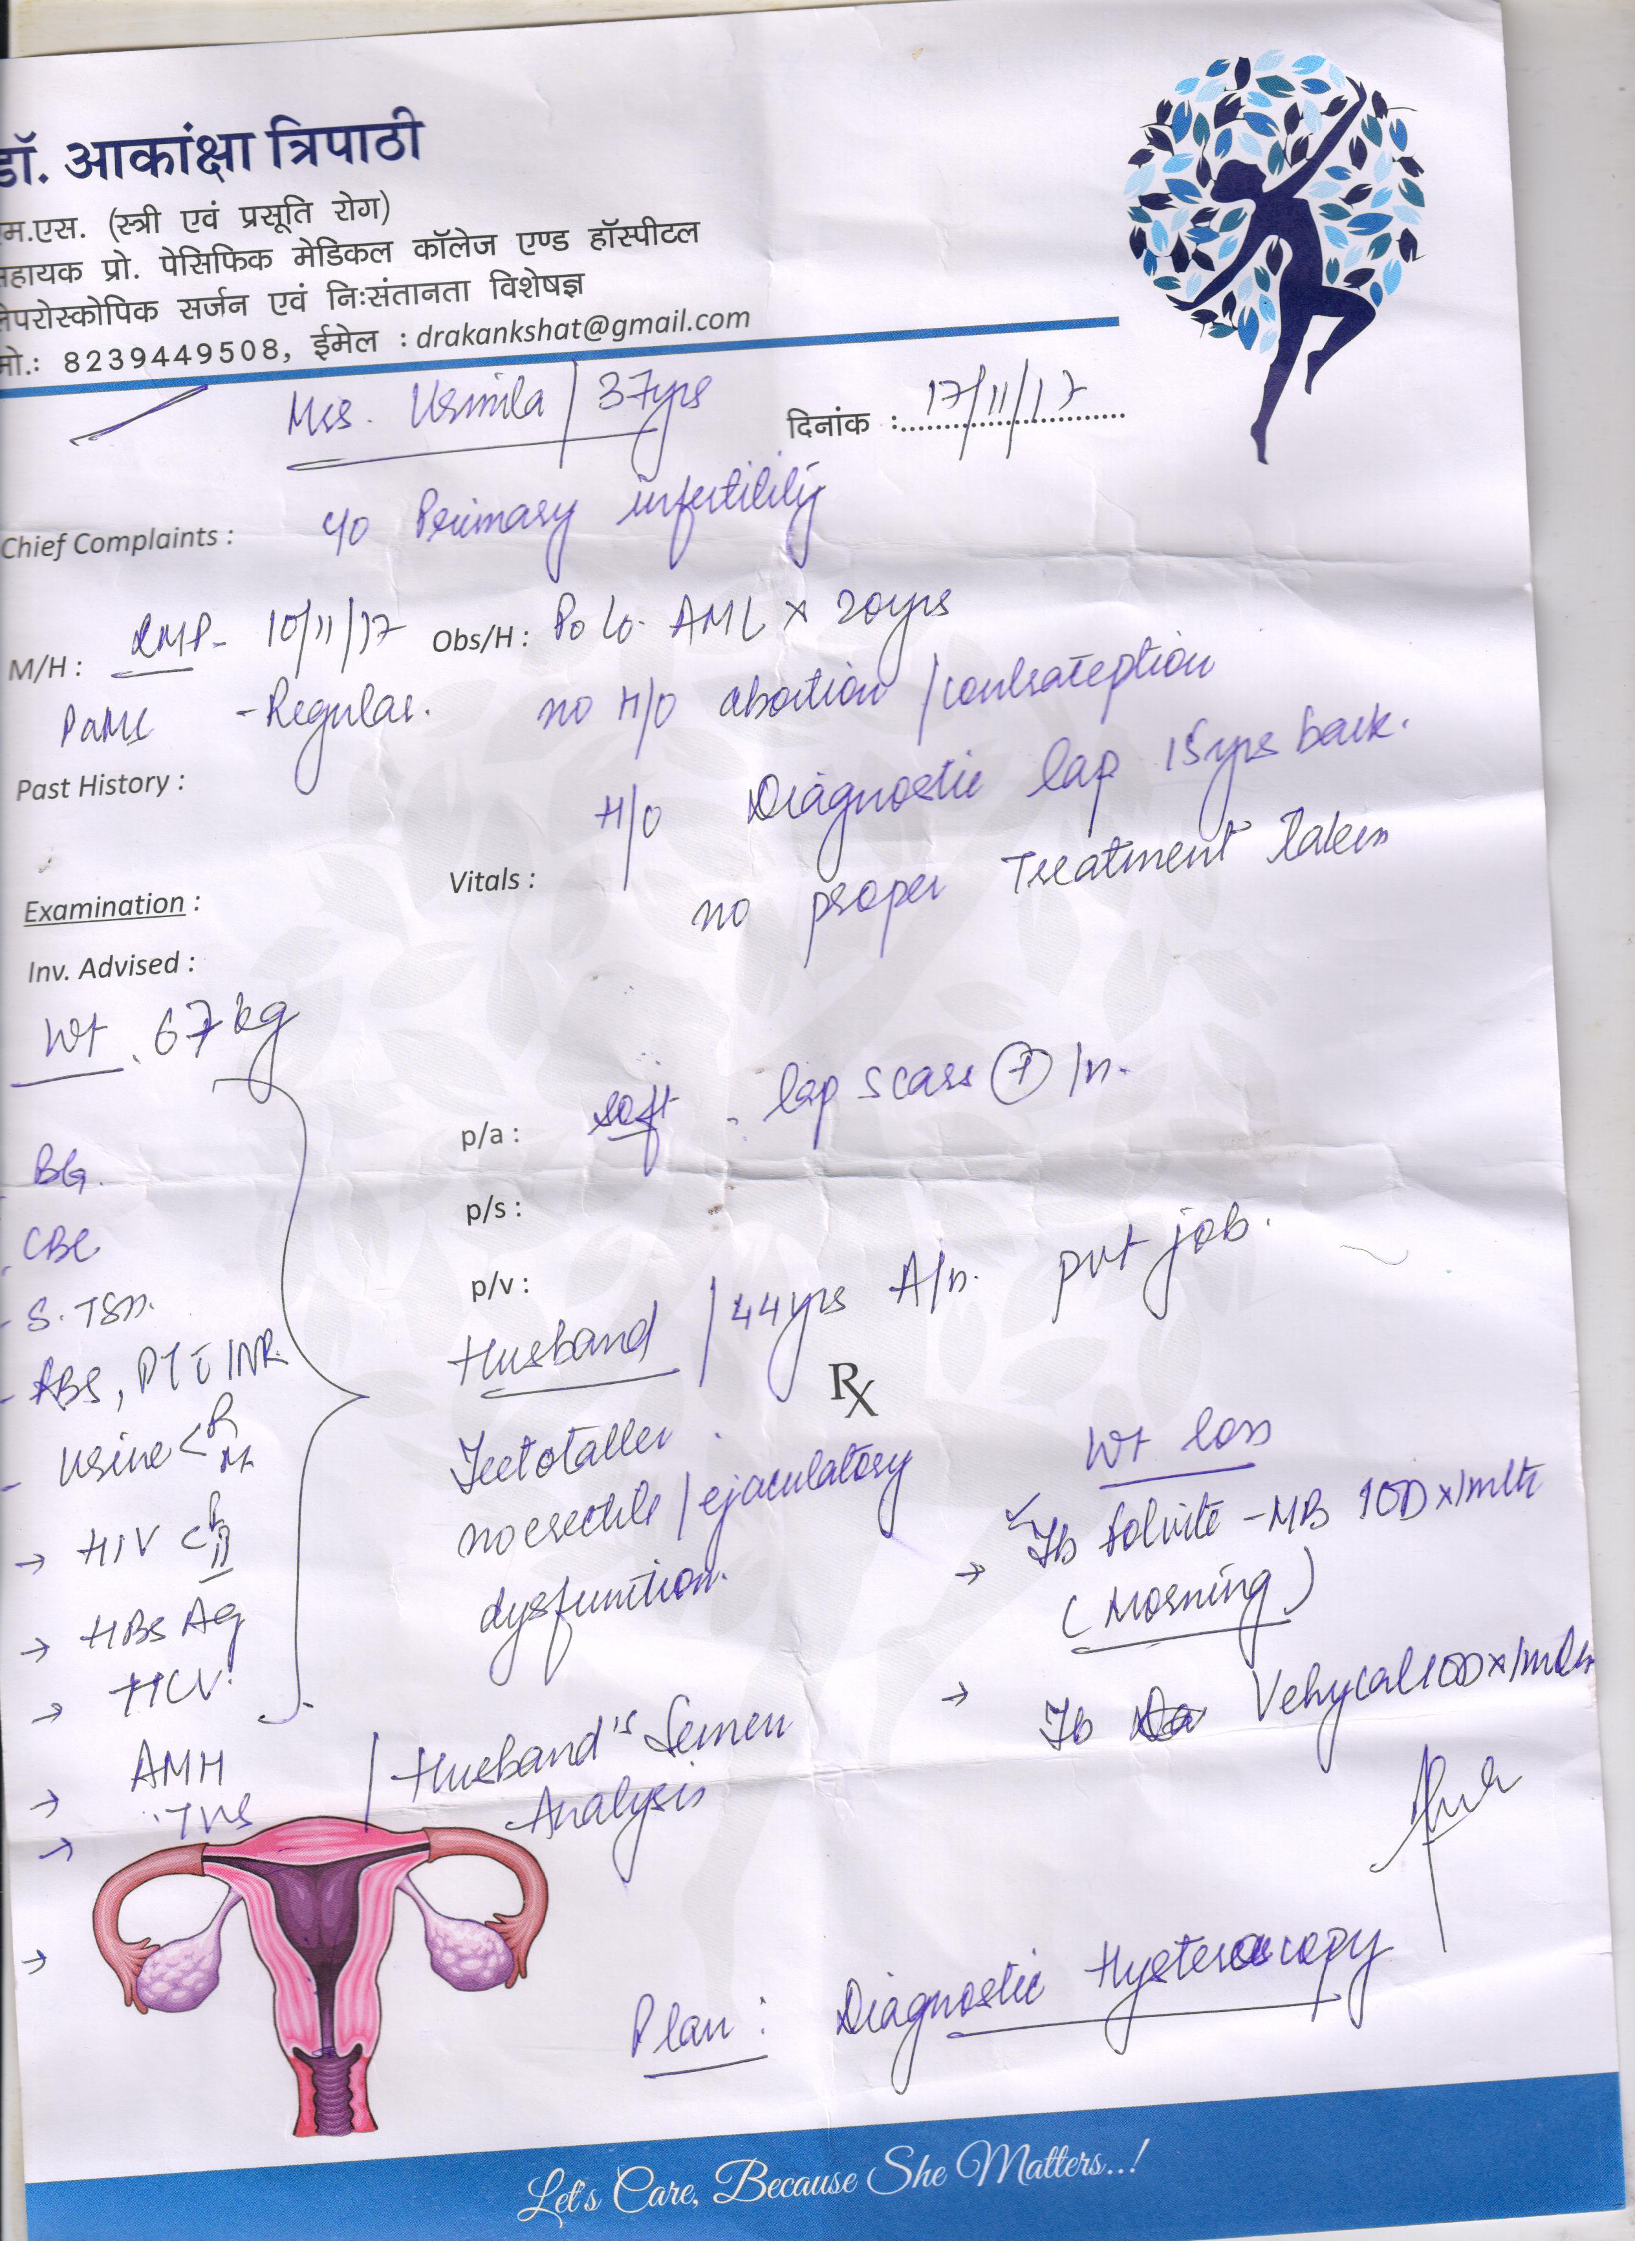 डॉ. आकांक्षा त्रिपाठी
म.एस. (स्त्री एवं प्रसूति रोग)
सहायक प्रो. पेसिफिक मेडिकल कॉलेज एण्ड हॉस्पीटल
लेपरोस्कोपिक सर्जन एवं निःसंतानता विशेषज्ञ
मो.: 8239449508, ईमेल : drakankshat@gmail.com
Mrs. Urmila / 37yrs
दिनांक : 17/11/17
Chief Complaints : c/o Primary infertility
M/H : LMP- 10/11/17
PaMC - Regular.
Obs/H : P0L0. AML x 20yrs
no H/O abortion / contraception
Past History :
H/O Diagnostic lap 15yrs back.
no proper Treatment Taken
Examination :
Vitals :
Inv. Advised :
Wt. 67kg
p/a : soft. lap scars + /n.
p/s :
p/v :
BG.
CBC
- S. TSH.
- RBS, PT c INR
- Urine < R M
→ HIV < I II
→ HBsAg
→ HCV.
→ AMH
→ TVS
Husband / 44yrs A/n. pvt job.
Teetotaller.
no erectile / ejaculatory
dysfunction.
Husband's Semen
Analysis
Rx
Wt loss
→ Tb Folvite-MB 1OD x 1mth
(Morning)
→ Tb Vehycal 1OD x 1mth
Plan : Diagnostic Hysteroscopy
Let's Care, Because She Matters..!